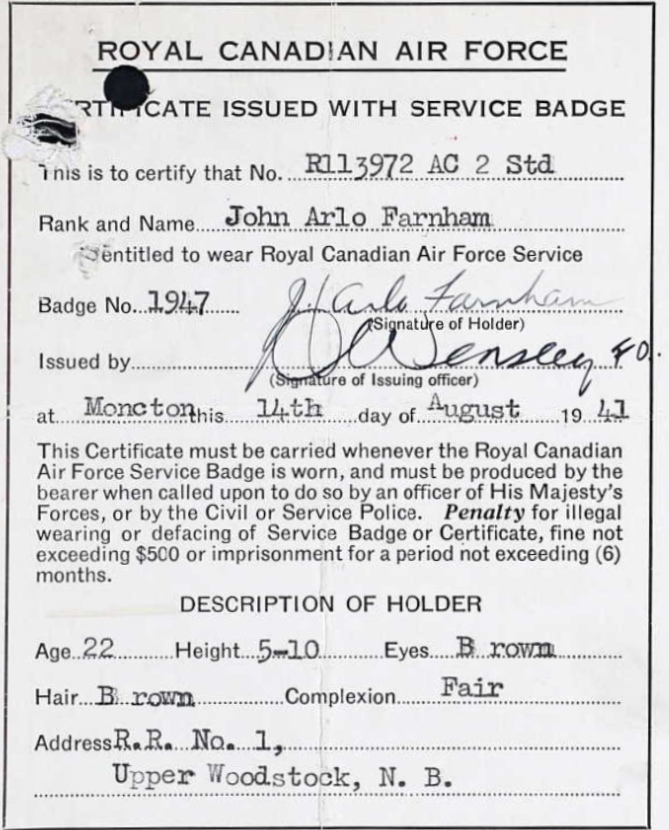 ROYAL CANADIAN AIR FORCE
CERTIFICATE ISSUED WITH SERVICE BADGE
This is to certify that No. R113972 AC 2 Std
Rank and Name John Arlo Farnham
entitled to wear Royal Canadian Air Force Service
Badge No. 1947 J. Arlo Farnham
(Signature of Holder)
Issued by Wensley F O.
(Signature of Issuing officer)
at Moncton this 14th day of August 19 41
This Certificate must be carried whenever the Royal Canadian
Air Force Service Badge is worn, and must be produced by the
bearer when called upon to do so by an officer of His Majesty's
Forces, or by the Civil or Service Police. Penalty for illegal
wearing or defacing of Service Badge or Certificate, fine not
exceeding $500 or imprisonment for a period not exceeding (6)
months.
DESCRIPTION OF HOLDER
Age 22 Height 5-10 Eyes B rown
Hair B rown Complexion Fair
Address R.R. No. 1,
Upper Woodstock, N. B.